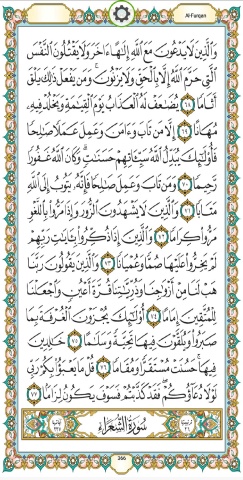 Al-Furqan
وَالَّذِينَ لَا يَدْعُونَ مَعَ اللَّهِ إِلَٰهًا آخَرَ وَلَا يَقْتُلُونَ النَّفْسَ
الَّتِي حَرَّمَ اللَّهُ إِلَّا بِالْحَقِّ وَلَا يَزْنُونَ ۚ وَمَن يَفْعَلْ ذَٰلِكَ يَلْقَ
أَثَامًا ﴿٦٨﴾ يُضَاعَفْ لَهُ الْعَذَابُ يَوْمَ الْقِيَامَةِ وَيَخْلُدْ فِيهِ
مُهَانًا ﴿٦٩﴾ إِلَّا مَن تَابَ وَآمَنَ وَعَمِلَ عَمَلًا صَالِحًا
فَأُولَٰئِكَ يُبَدِّلُ اللَّهُ سَيِّئَاتِهِمْ حَسَنَاتٍ ۗ وَكَانَ اللَّهُ غَفُورًا
رَّحِيمًا ﴿٧٠﴾ وَمَن تَابَ وَعَمِلَ صَالِحًا فَإِنَّهُ يَتُوبُ إِلَى اللَّهِ
مَتَابًا ﴿٧١﴾ وَالَّذِينَ لَا يَشْهَدُونَ الزُّورَ وَإِذَا مَرُّوا بِاللَّغْوِ
مَرُّوا كِرَامًا ﴿٧٢﴾ وَالَّذِينَ إِذَا ذُكِّرُوا بِآيَاتِ رَبِّهِمْ
لَمْ يَخِرُّوا عَلَيْهَا صُمًّا وَعُمْيَانًا ﴿٧٣﴾ وَالَّذِينَ يَقُولُونَ رَبَّنَا
هَبْ لَنَا مِنْ أَزْوَاجِنَا وَذُرِّيَّاتِنَا قُرَّةَ أَعْيُنٍ وَاجْعَلْنَا
لِلْمُتَّقِينَ إِمَامًا ﴿٧٤﴾ أُولَٰئِكَ يُجْزَوْنَ الْغُرْفَةَ بِمَا
صَبَرُوا وَيُلَقَّوْنَ فِيهَا تَحِيَّةً وَسَلَامًا ﴿٧٥﴾ خَالِدِينَ
فِيهَا ۚ حَسُنَتْ مُسْتَقَرًّا وَمُقَامًا ﴿٧٦﴾ قُلْ مَا يَعْبَأُ بِكُمْ رَبِّي
لَوْلَا دُعَاؤُكُمْ ۖ فَقَدْ كَذَّبْتُمْ فَسَوْفَ يَكُونُ لِزَامًا ﴿٧٧﴾
سُورَةُ الشُّعَرَاءِ
366